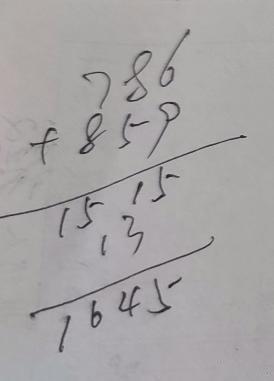 786
+ 859
15 15
13
1645